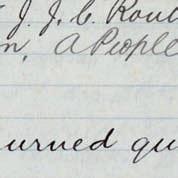 J. J. C. Rout
n, A People
urned qu